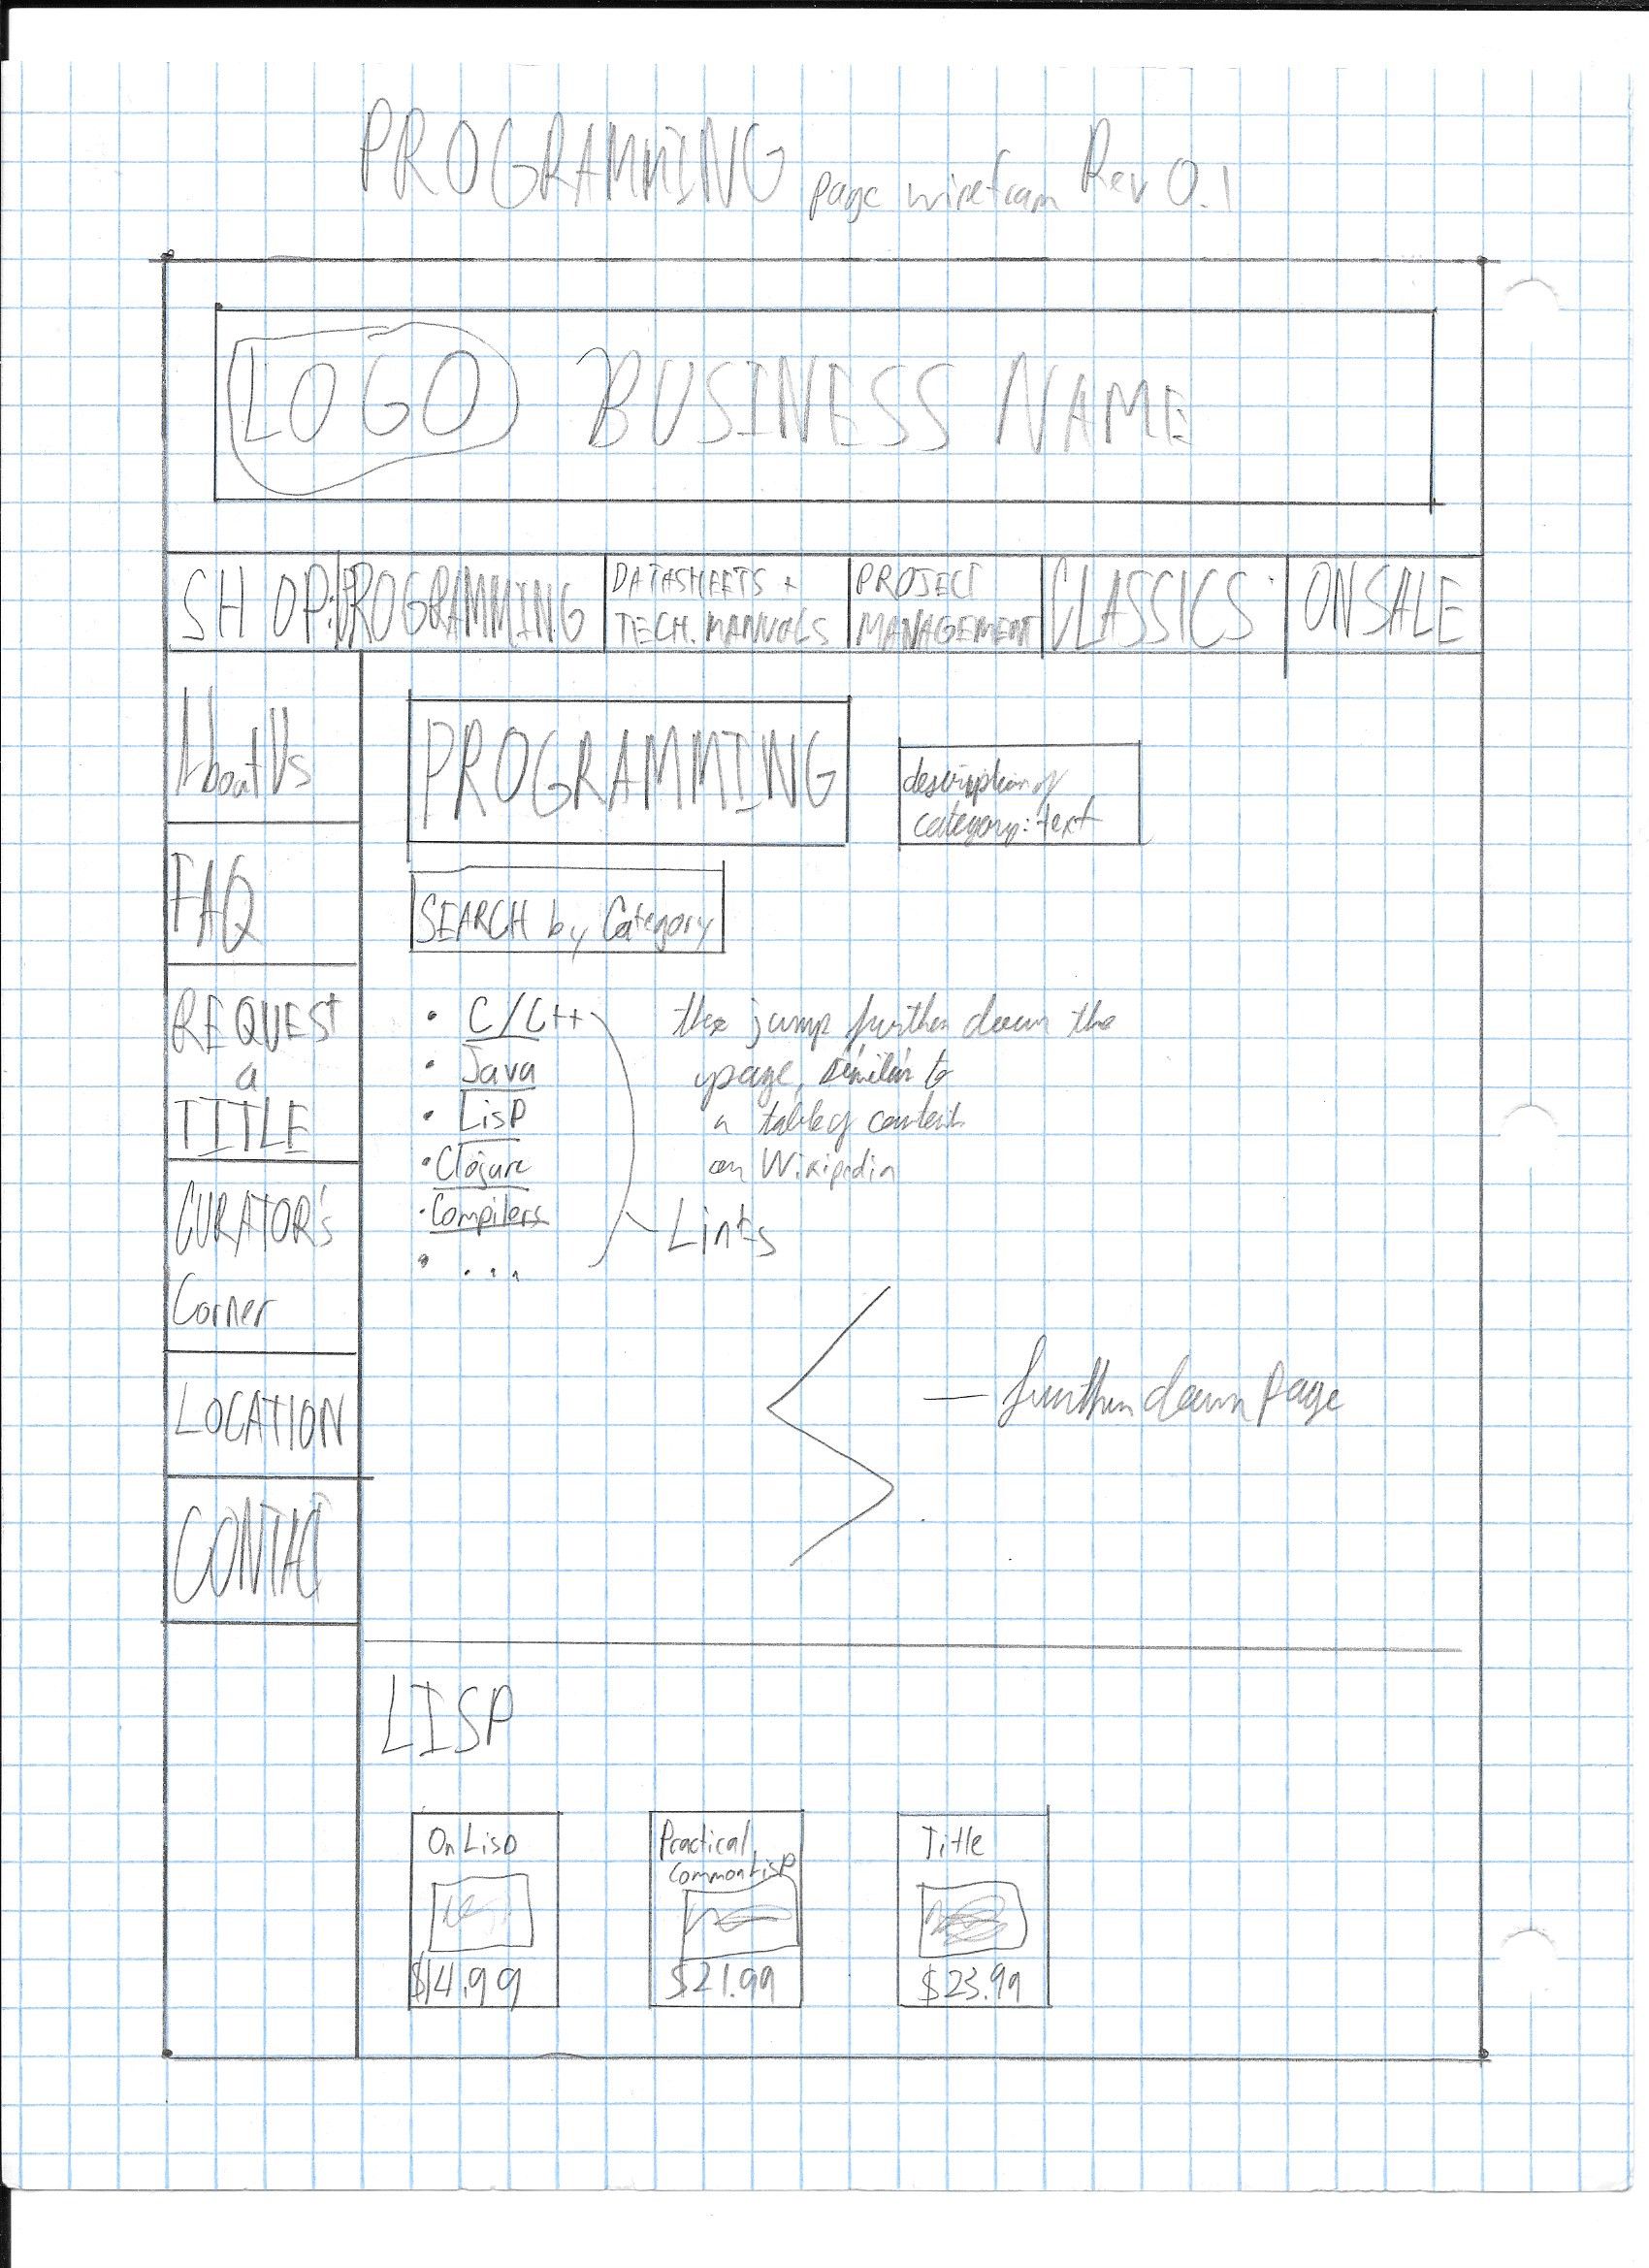 PROGRAMMING page wirefram Rev 0.1
LOGO BUSINESS NAME
SHOP: PROGRAMMING DATASHEETS + TECH. MANUALS PROJECT MANAGEMENT CLASSICS ON SALE
About Us
FAQ
REQUEST
a
TITLE
CURATOR's
Corner
LOCATION
CONTACT
PROGRAMMING
description of
category: text
SEARCH by Category
• C/C++
• Java
• Lisp
• Clojure
• Compilers
• ...
jump further down the
page, similar to
a table of content
on Wikipedia
Links
— further down page
LISP
On Lisp
$14.99
Practical
Common Lisp
$21.99
Title
$23.99